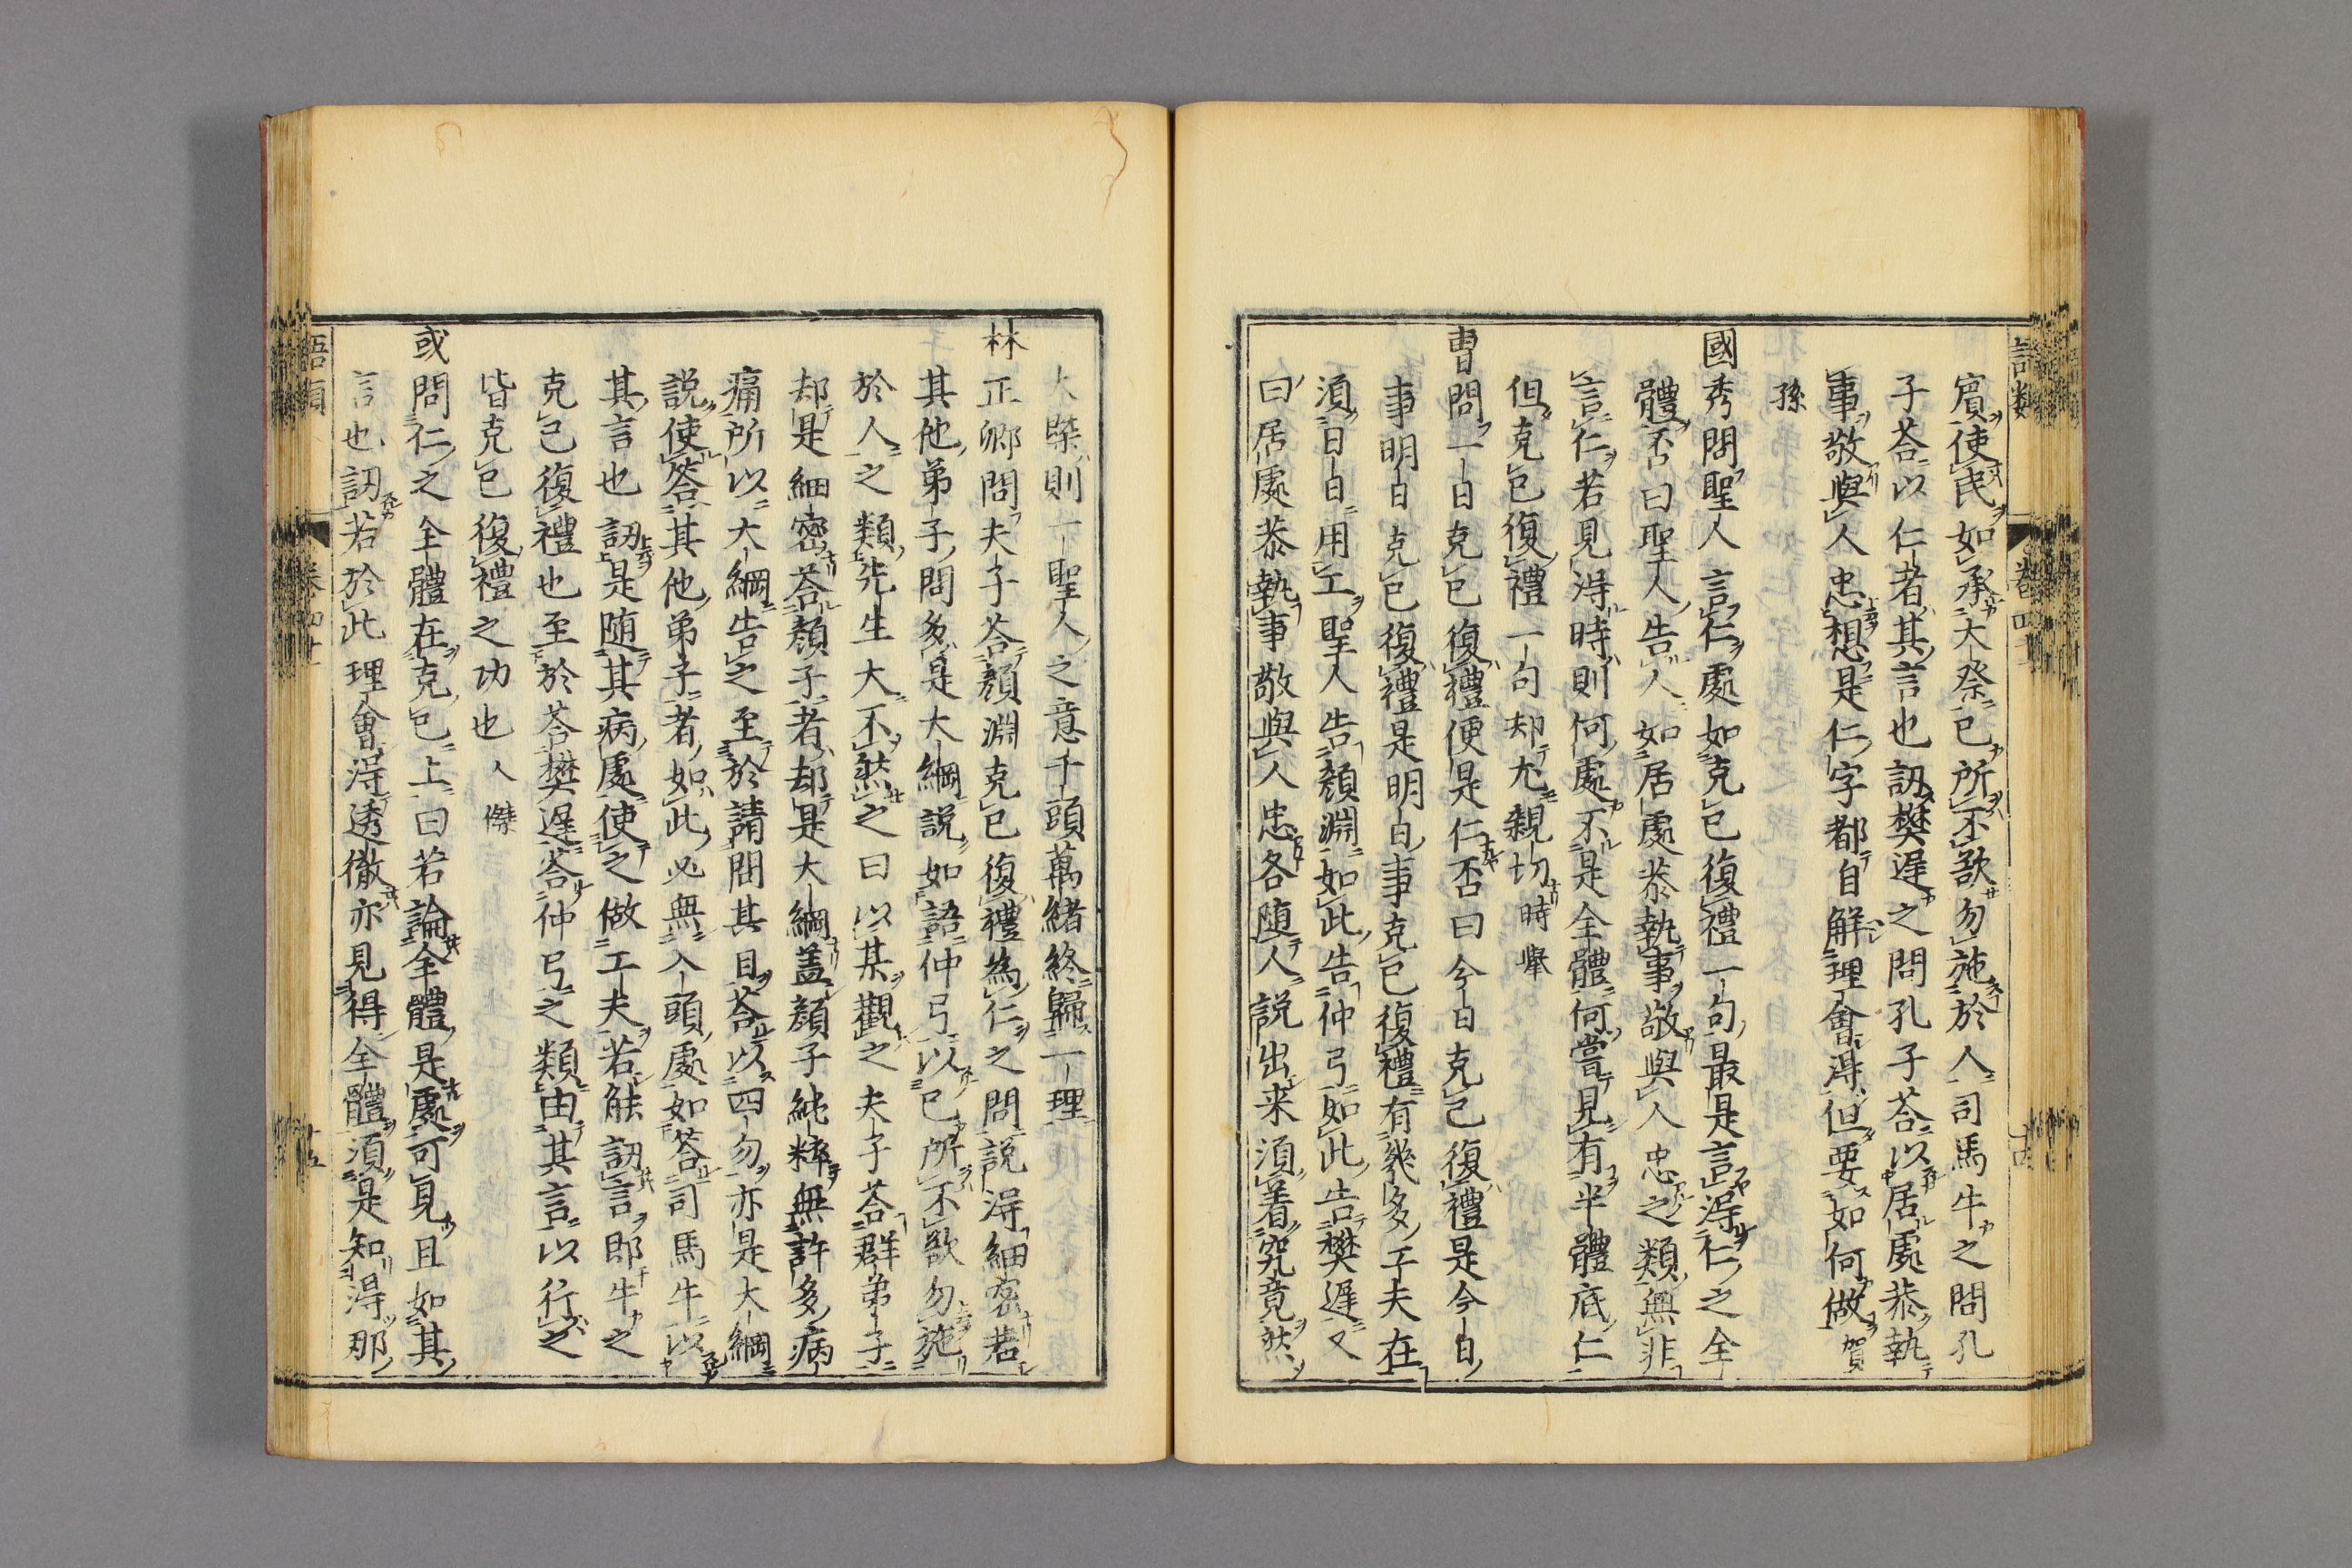 賔使民如承大祭已所不欲勿施於人司馬牛之問孔
子荅以仁者其言也訒樊遟之問孔子荅以居處恭執
事敬與人忠想是仁字都自解理會得但要如何做賀
孫
國秀問聖人言仁處如克已復禮一句最是言得仁之全
體否曰聖人告人如居處恭執事敬與人忠之類無非
言仁若見得時則何處不是全體何嘗見有半體底仁
但克已復禮一句却尤親切時舉
曺問一日克已復禮便是仁否曰今日克己復禮是今日
事明日克已復禮是明日事克已復禮有幾多工夫在
須日日用工聖人告顔淵如此告仲弓如此告樊遟又
曰居處恭執事敬與人忠各随人説出来須着究竟然
大槩則一聖人之意千頭萬緒終歸一理
林正卿問夫子荅顔淵克已復禮為仁之問説得細宻若
其他弟子問多是大綱説如語仲弓以已所不欲勿施
於人之類先生大不然之曰以某觀之夫子荅群弟子
却是細宻荅顔子者却是大綱盖顔子純粹無許多病
痛所以大綱告之至於請問其目荅以四勿亦是大綱
説使答其他弟子者如此必無入頭處如答司馬牛以
其言也訒是随其病處使之做工夫若能訒言即牛之
克己復禮也至於荅樊遟荅仲弓之類由其言以行之
皆克已復禮之功也人傑
或問仁之全體在克已上曰若論全體是處可見且如其
言也訒若於此理會得透徹亦見得全體須是知得那
語類